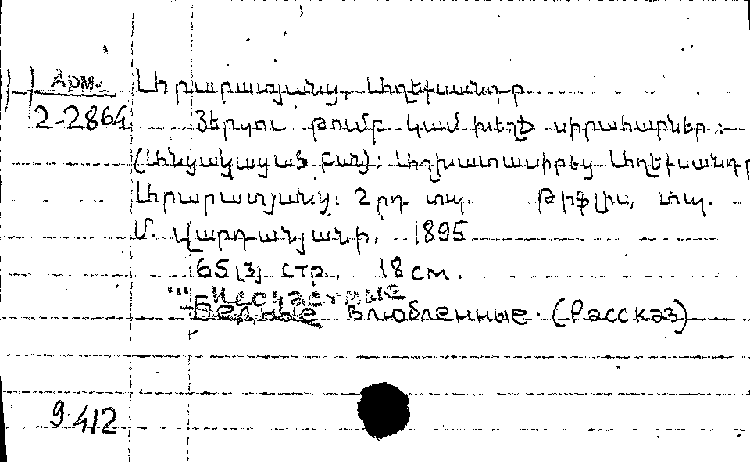 Арм.
2-2864
Արարատյանց, Ալեքսանդր
Յերկու թումբ կամ խեղճ սիրահարներ:
Աշխատասիրեց Ալեքսանդր
Արարատյանց: 2րդ տպ. Թիֆլիս, տպ.
Մ. Վարդանյանի, 1895
65 [3] стр. 18 см.
Несчастные
Бедные влюбленные. (Рассказ)
9412